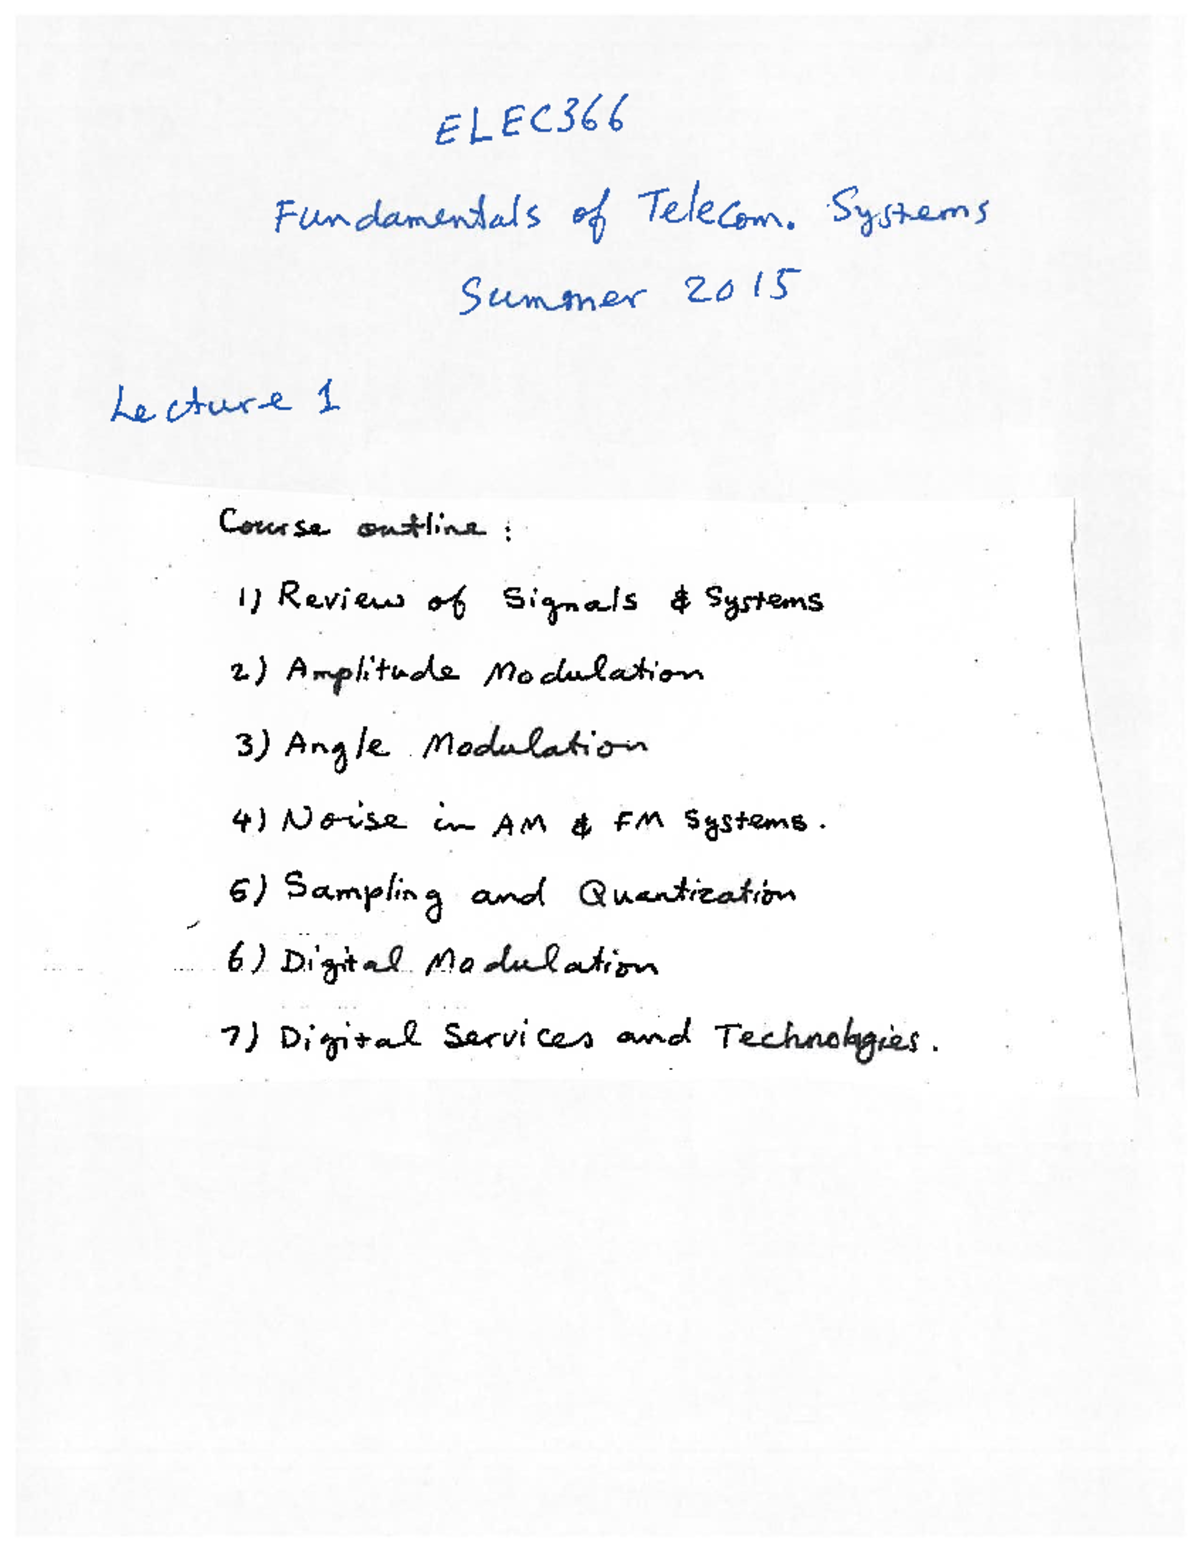 ELEC366
Fundamentals of Telecom. Systems
Summer 2015
Lecture 1
Course outline :
1) Review of Signals & Systems
2) Amplitude Modulation
3) Angle Modulation
4) Noise in AM & FM Systems.
5) Sampling and Quantization
6) Digital Modulation
7) Digital Services and Technologies.